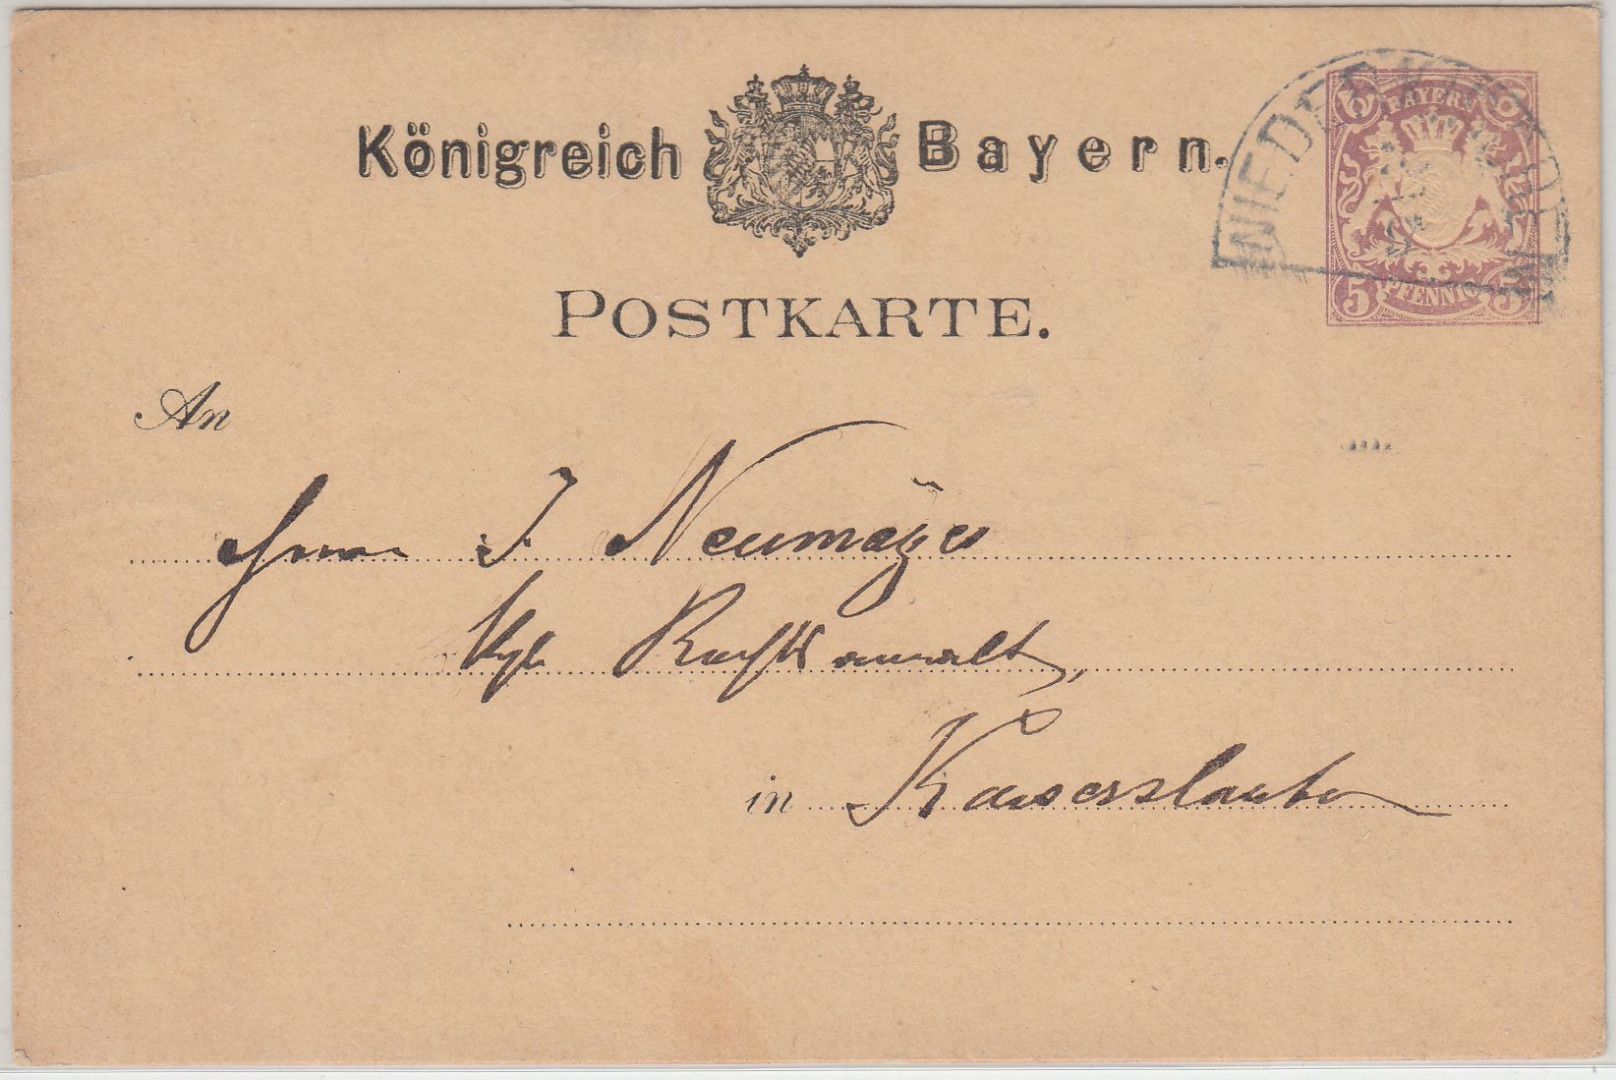 Königreich Bayern.
BAYERN
5 PFENNIG 5
POSTKARTE.
An
Herrn J. Neumayer
Kgl. Rechtsanwalt,
in Kaiserslautern